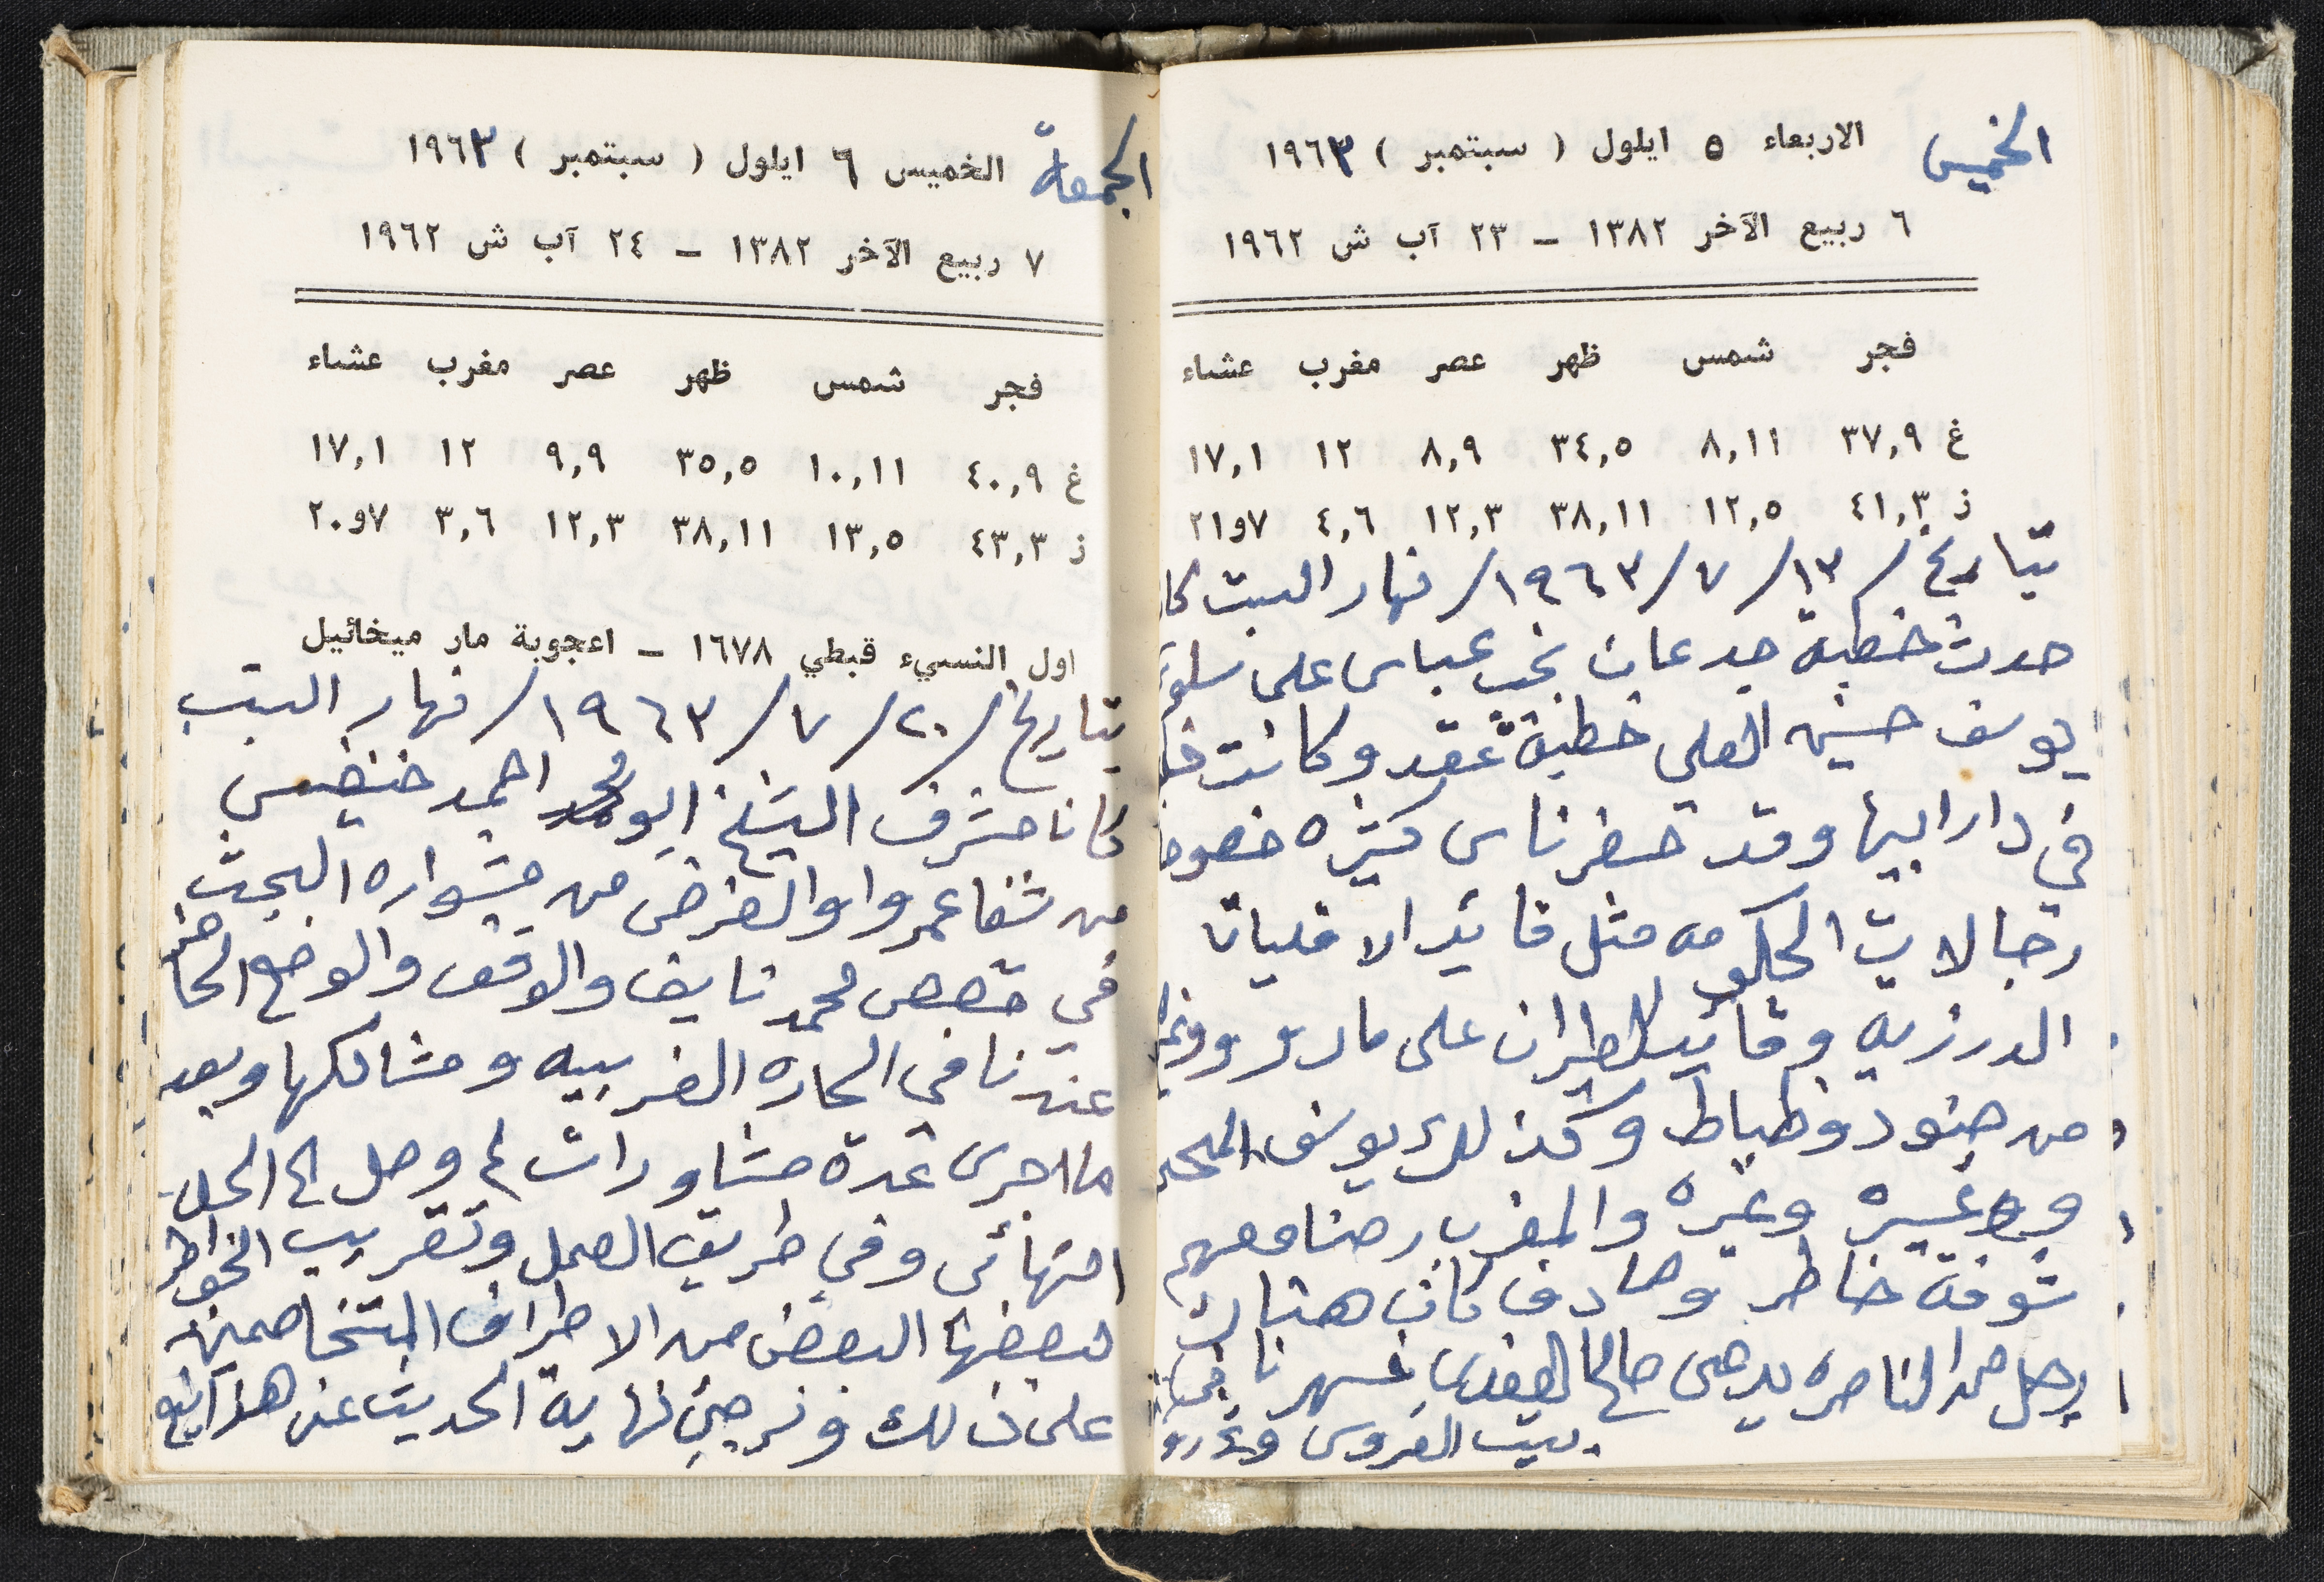 الخميس
الاربعاء ٥ ايلول ( سبتمبر ) ١٩٦٣
٦ ربيع الآخر ١٣٨٢ – ٢٣ آب ش ١٩٦٢
فجر شمس ظهر عصر مغرب عشاء
غ ٣٧,٩ ٨,١١ ٣٤,٥ ٨,٩ ١٢ ١٧,١
ز ٤١,٣ ١٢,٥ ٣٨,١١ ١٢,٣ ٤,٦ ٧و٢١
بتاريخ /١٣/ ٧/ ١٩٦٣/ نهار السبت
حدث خطبة جدعان عباس على
يوسف حسين العلي خطبة عقد وكانت
في دار ابيها وقد حضر ناس كثيره خصوصا
رجالات الحكومه مثل قائد الاقليات
الدرزيه وقائد الطيران على مارر
من جنود وظباط وكذلك يوسف
وغيره وغيره والمغرب رحنا معهم
شوفة خاطر وصادف كان هناك
رجل من الناصره يدعى صالح سهرنا في
بيت العروس
الجمعة
الخميس ٦ ايلول ( سبتمبر ) ١٩٦٣
٧ ربيع الآخر ١٣٨٢ – ٢٤ آب ش ١٩٦٢
فجر شمس ظهر عصر مغرب عشاء
غ ٤٠,٩ ١٠,١١ ٣٥,٥ ٩,٩ ١٢ ١٧,١
ز ٤٣,٣ ١٣,٥ ٣٨,١١ ١٢,٣ ٣,٦ ٧و٢٠
اول النسيء قبطي ١٦٧٨ – اعجوبة مار ميخائيل
بتاريخ /٢٠/ ٧/ ١٩٦٣/ نهار السبت
كانا مشرف الشيخ ابو محمد احمد خنيفس
من شفاعمرو والغرض من مشواره البحث
في قصص محمد نايف والوقف والوضع الحاضر
عندنا في الحاره الغربيه ومشاكلها وبعد
ما جرى عدة مشاورات لم وصل الى الحل
انتهائي وفي طريق العمل وتقريب الخواطر
لبعضها البعض من الاطراف المتخاصمين
على ذلك ونرجئ نهاية الحديث عن هذا